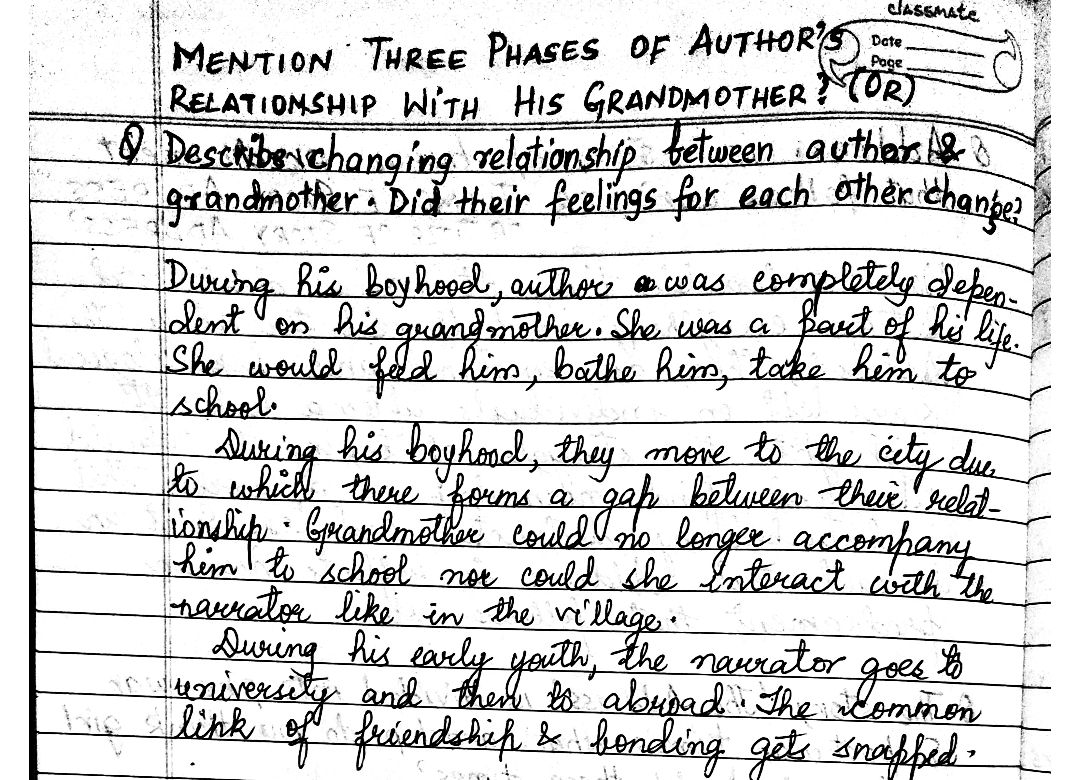 classmate
Date
Page
MENTION THREE PHASES OF AUTHOR'S
RELATIONSHIP WITH HIS GRANDMOTHER? (OR)
Q Describe changing relationship between author &
grandmother. Did their feelings for each other change?
During his boyhood, author was completely depen-
dent on his grandmother. She was a part of his life.
She would feed him, bathe him, take him to
school.
During his boyhood, they move to the city due
to which there forms a gap between their relat-
ionship. Grandmother could no longer accompany
him to school nor could she interact with the
narrator like in the village.
During his early youth, the narrator goes to
university and then to abroad. The common
link of friendship & bonding gets snapped.